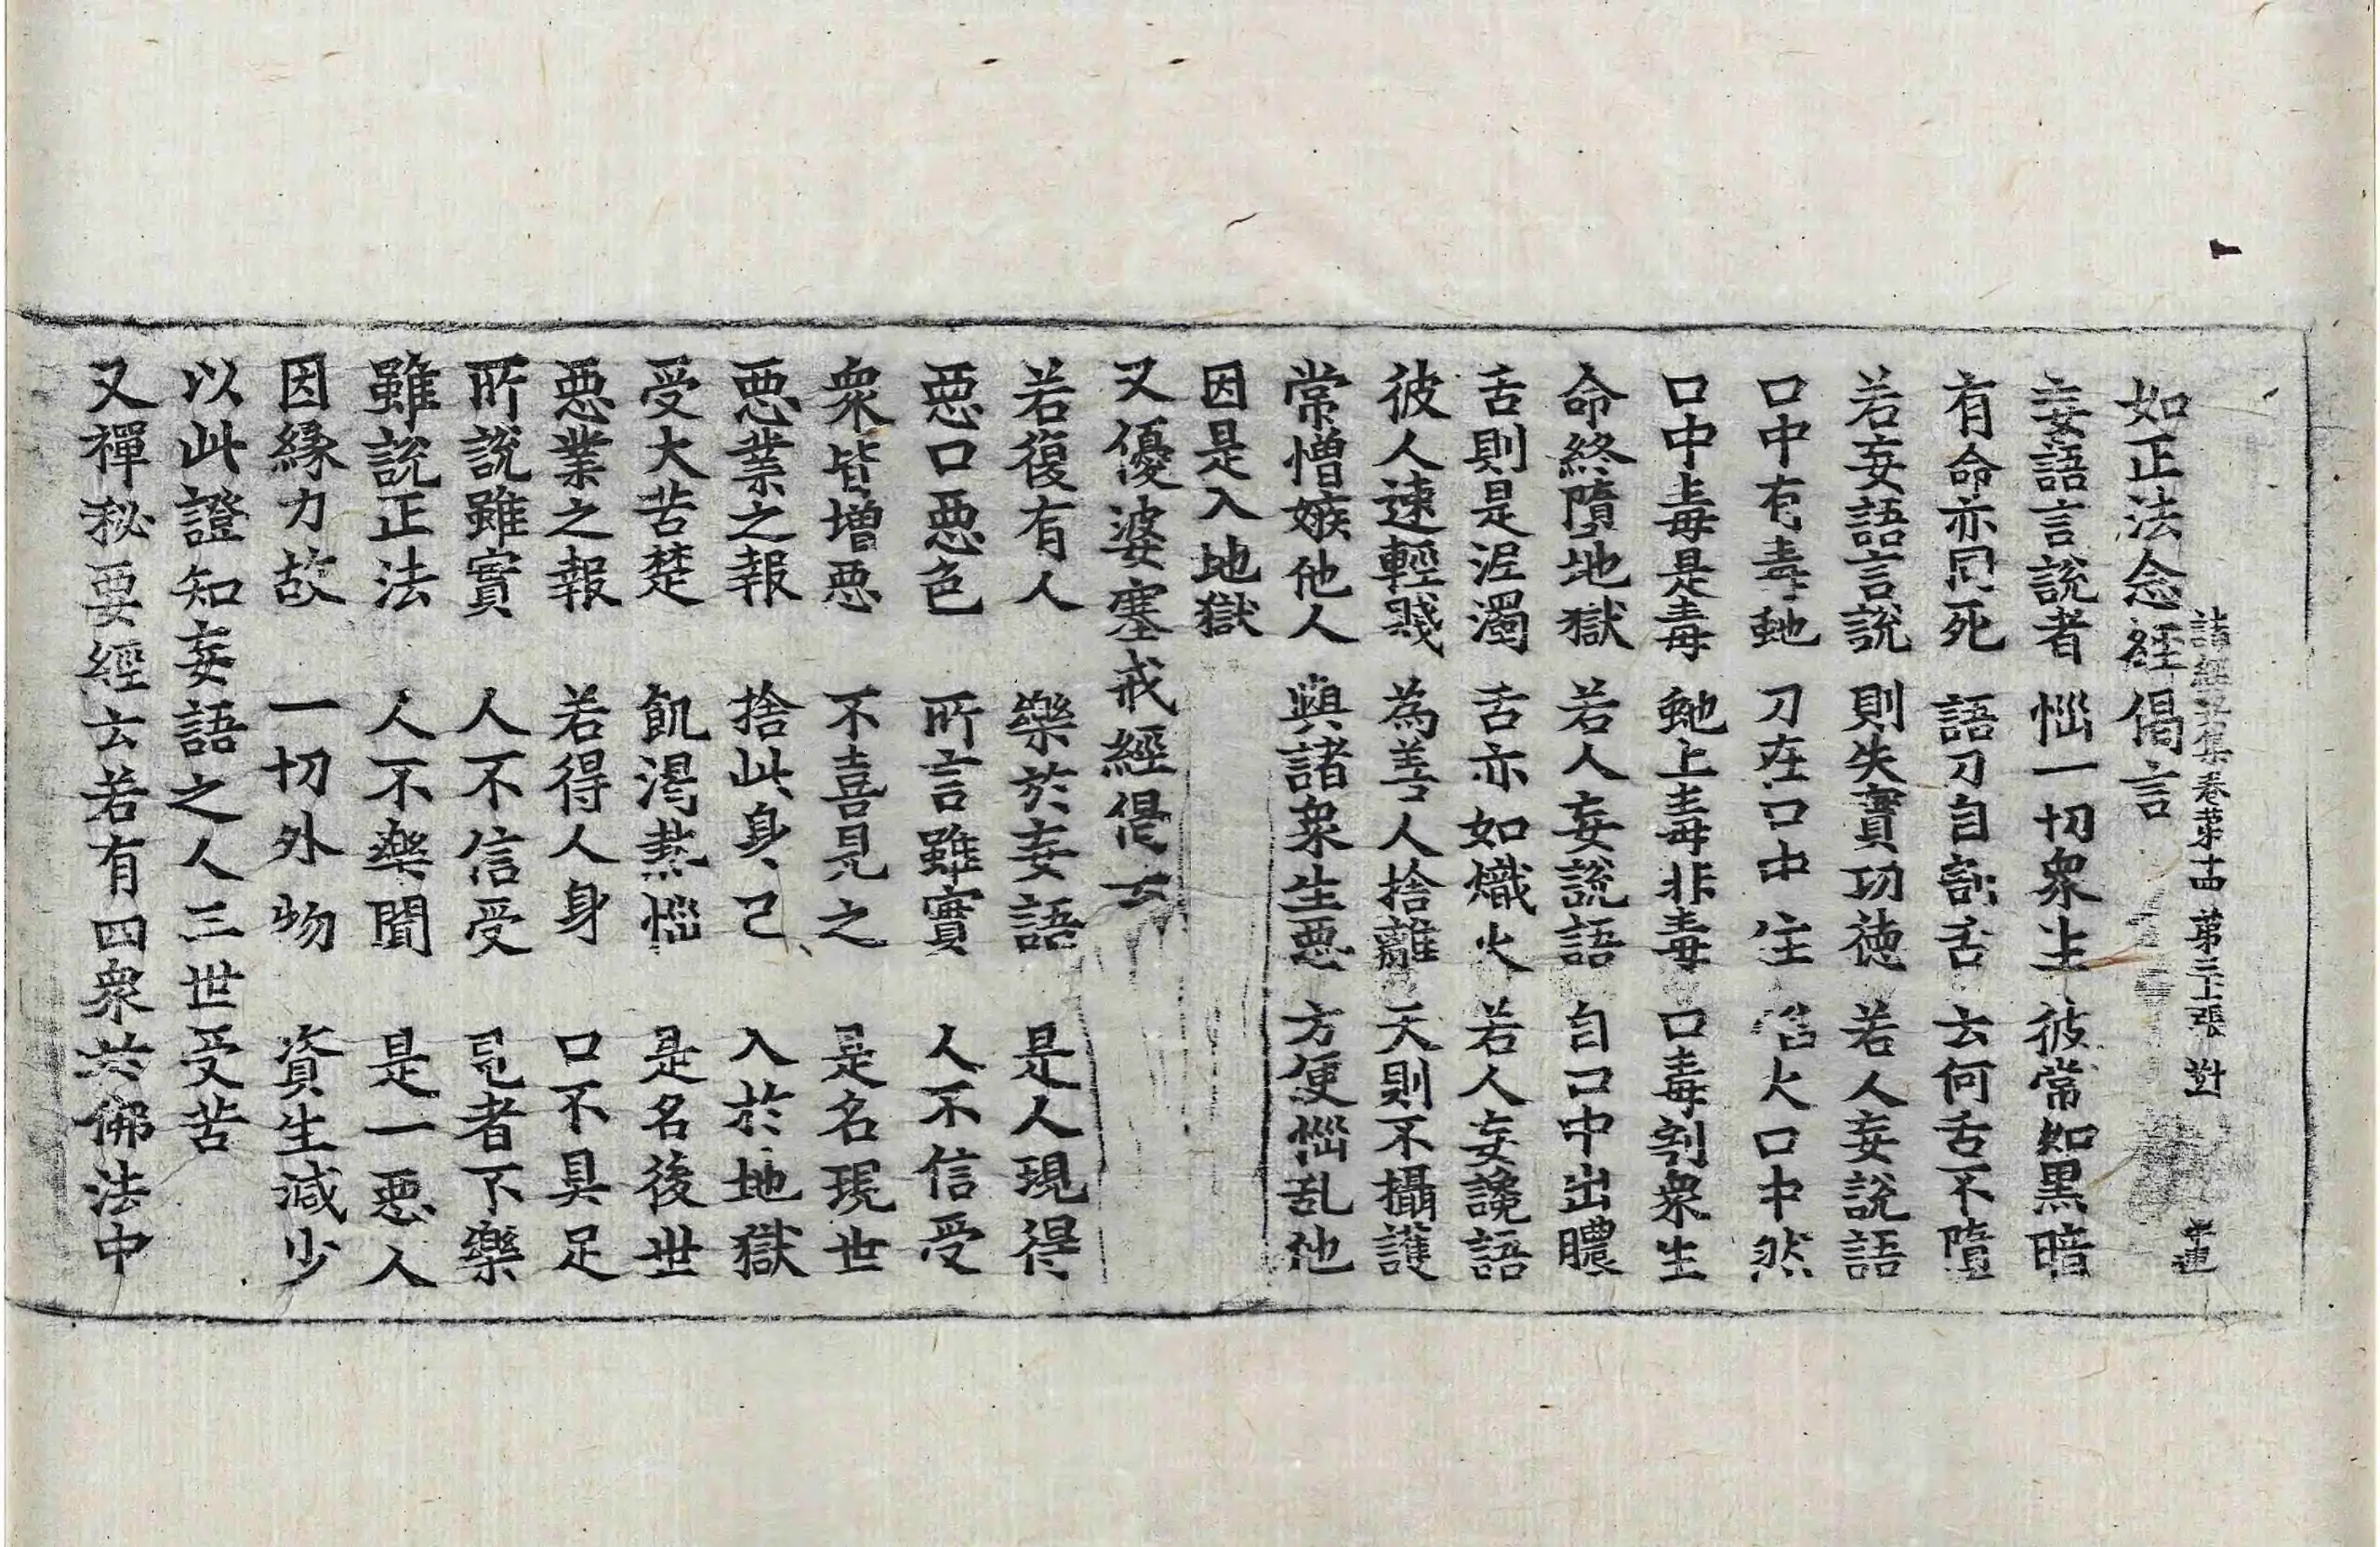 諸經要集卷第十四 第三十二張 對
如正法念經偈言
妄語言說者 惱一切衆生 彼常如黑暗
有命亦同死 語刀自割舌 云何舌不墮
若妄語言說 則失實功德 若人妄說語
口中有毒虵 刀在口中住 㷔火口中然
口中毒是毒 虵上毒非毒 口毒割衆生
命終墮地獄 若人妄說語 自口中出膿
舌則是泥濁 舌亦如熾火 若人妄讒語
彼人速輕賤 為善人捨離 天則不攝護
常憎嫉他人 與諸衆生惡 方便惱乱他
因是入地獄
又優婆塞戒經偈云
若復有人 樂於妄語 是人現得
惡口惡色 所言雖實 人不信受
衆皆增惡 不喜見之 是名現世
惡業之報 捨此身已 入於地獄
受大苦楚 飢渴熱惱 是名後世
惡業之報 若得人身 口不具足
所說雖實 人不信受 見者不樂
雖說正法 人不樂聞 是一惡人
因緣力故 一切外物 資生減少
以此證知妄語之人三世受苦
又禪秘要經云若有四衆於佛法中